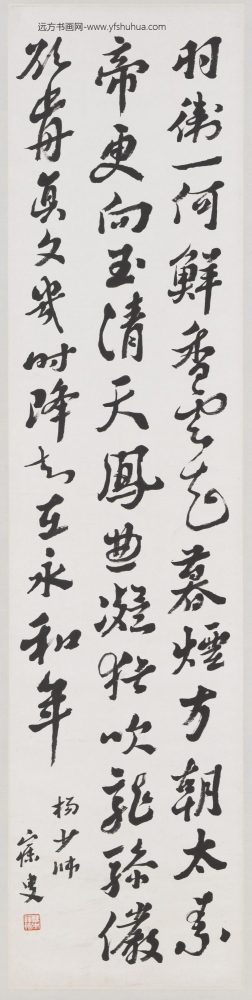 远方书画网- www.yfshuhua.com
羽衛一何鮮香雲起暮煙方朝太素
帝更向玉清天鳳曲凝猶吹龍驂儼
欲歬真文幾时降知在永和年
楊少師
寐叟